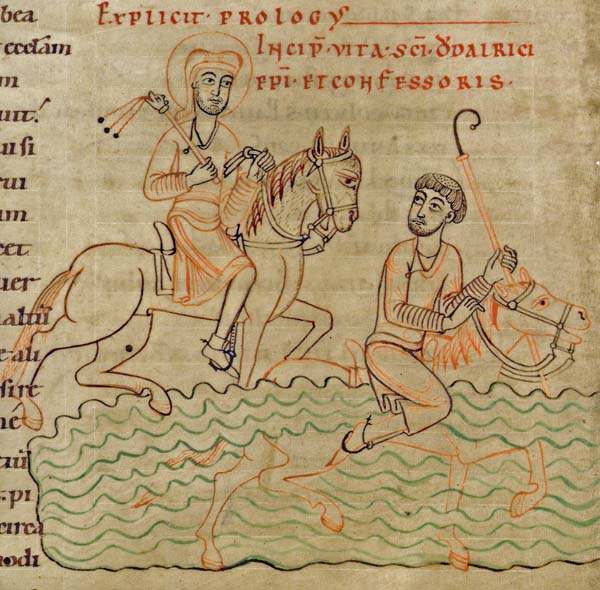 bea
eccłam
m
uit!
ui si
rui
um
cet
uer
altū
e· ali
sire
né
· pi
circa
odi
EXPLICIT · PROLOGY
INCIP̄ · VITA · SC̄I · OͮDALRICI
EP̄I · ET CONFESSORIS ·